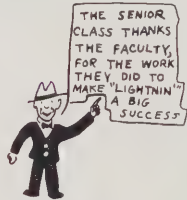 THE SENIOR
CLASS THANKS
THE FACULTY,
FOR THE WORK
THEY DID TO
MAKE "LIGHTNIN'"
A BIG
SUCCESS